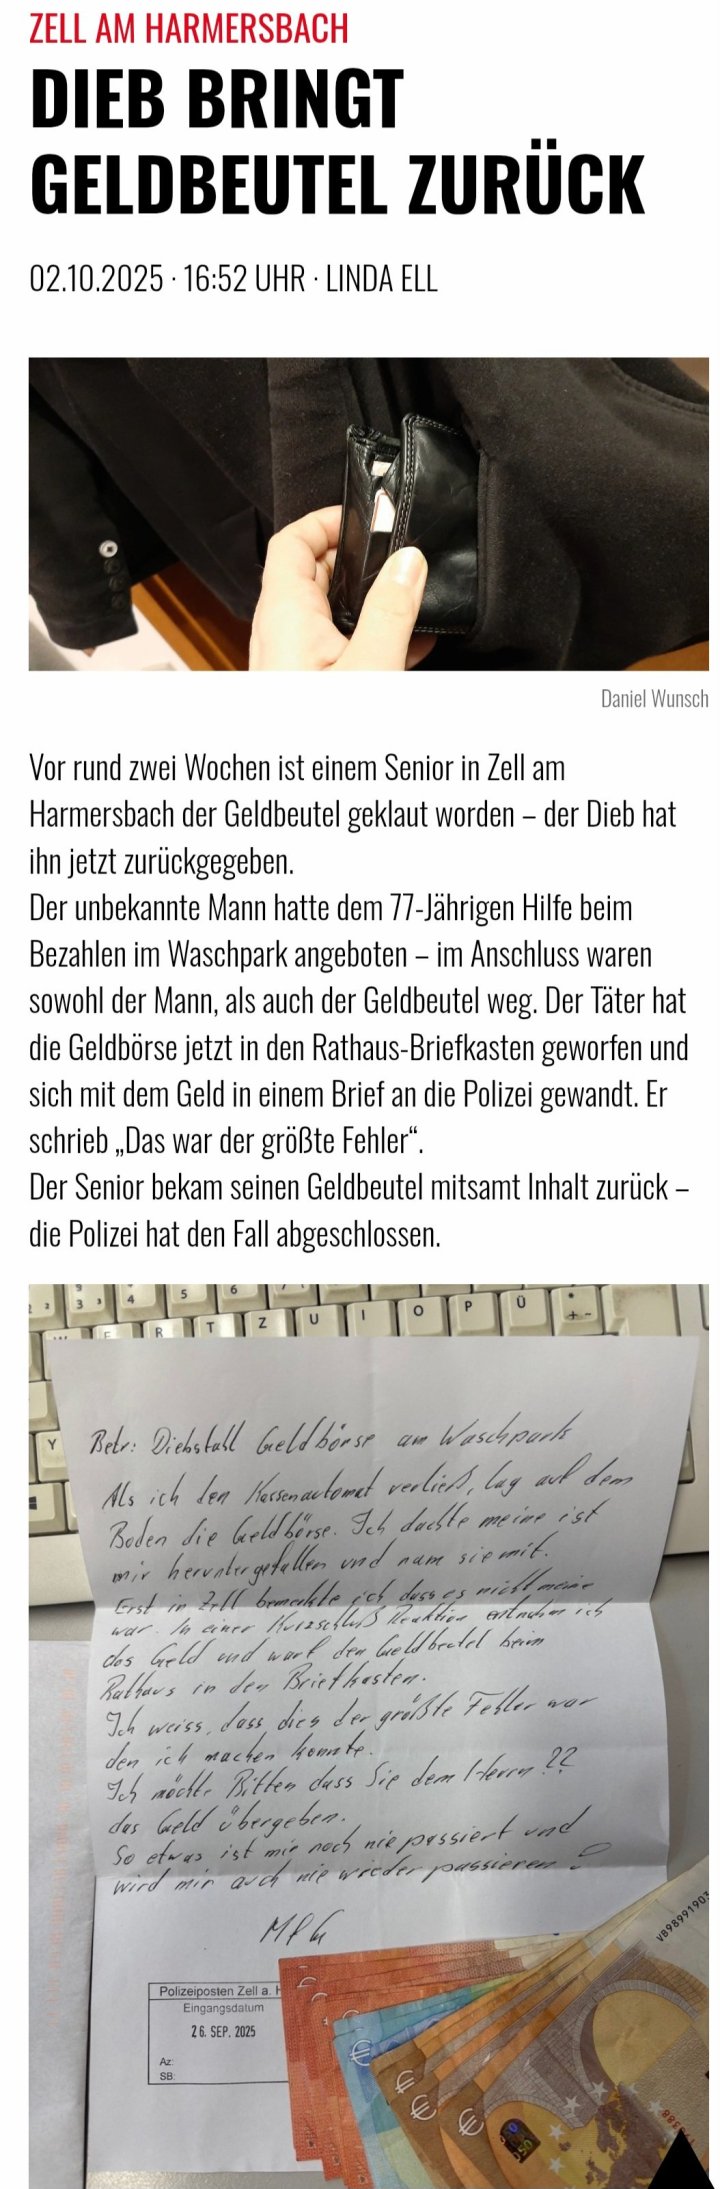 ZELL AM HARMERSBACH
DIEB BRINGT
GELDBEUTEL ZURÜCK
02.10.2025 · 16:52 UHR · LINDA ELL
Daniel Wunsch
Vor rund zwei Wochen ist einem Senior in Zell am
Harmersbach der Geldbeutel geklaut worden – der Dieb hat
ihn jetzt zurückgegeben.
Der unbekannte Mann hatte dem 77-Jährigen Hilfe beim
Bezahlen im Waschpark angeboten – im Anschluss waren
sowohl der Mann, als auch der Geldbeutel weg. Der Täter hat
die Geldbörse jetzt in den Rathaus-Briefkasten geworfen und
sich mit dem Geld in einem Brief an die Polizei gewandt. Er
schrieb „Das war der größte Fehler“.
Der Senior bekam seinen Geldbeutel mitsamt Inhalt zurück –
die Polizei hat den Fall abgeschlossen.
3 3 4 5 6
R T Z U I O P Ü * + ~
Y
Betr: Diebstahl Geldbörse am Waschpark
Als ich den Kassenautomat verließ, lag auf dem
Boden die Geldbörse. Ich dachte meine ist
mir heruntergefallen und nam sie mit.
Erst in Zell bemerkte ich dass es nicht meine
war. In einer Kurzschluß Reaktion entnahm ich
das Geld und warf den Geldbeutel beim
Rathaus in den Briefkasten.
Ich weiss, dass dies der größte Fehler war
den ich machen konnte.
Ich möchte Bitten dass Sie dem Herrn ??
das Geld übergeben.
So etwas ist mir noch nie passiert und
wird mir auch nie wieder passieren !
Polizeiposten Zell a. H
Eingangsdatum
26. SEP. 2025
Az:
SB:
VB98991903